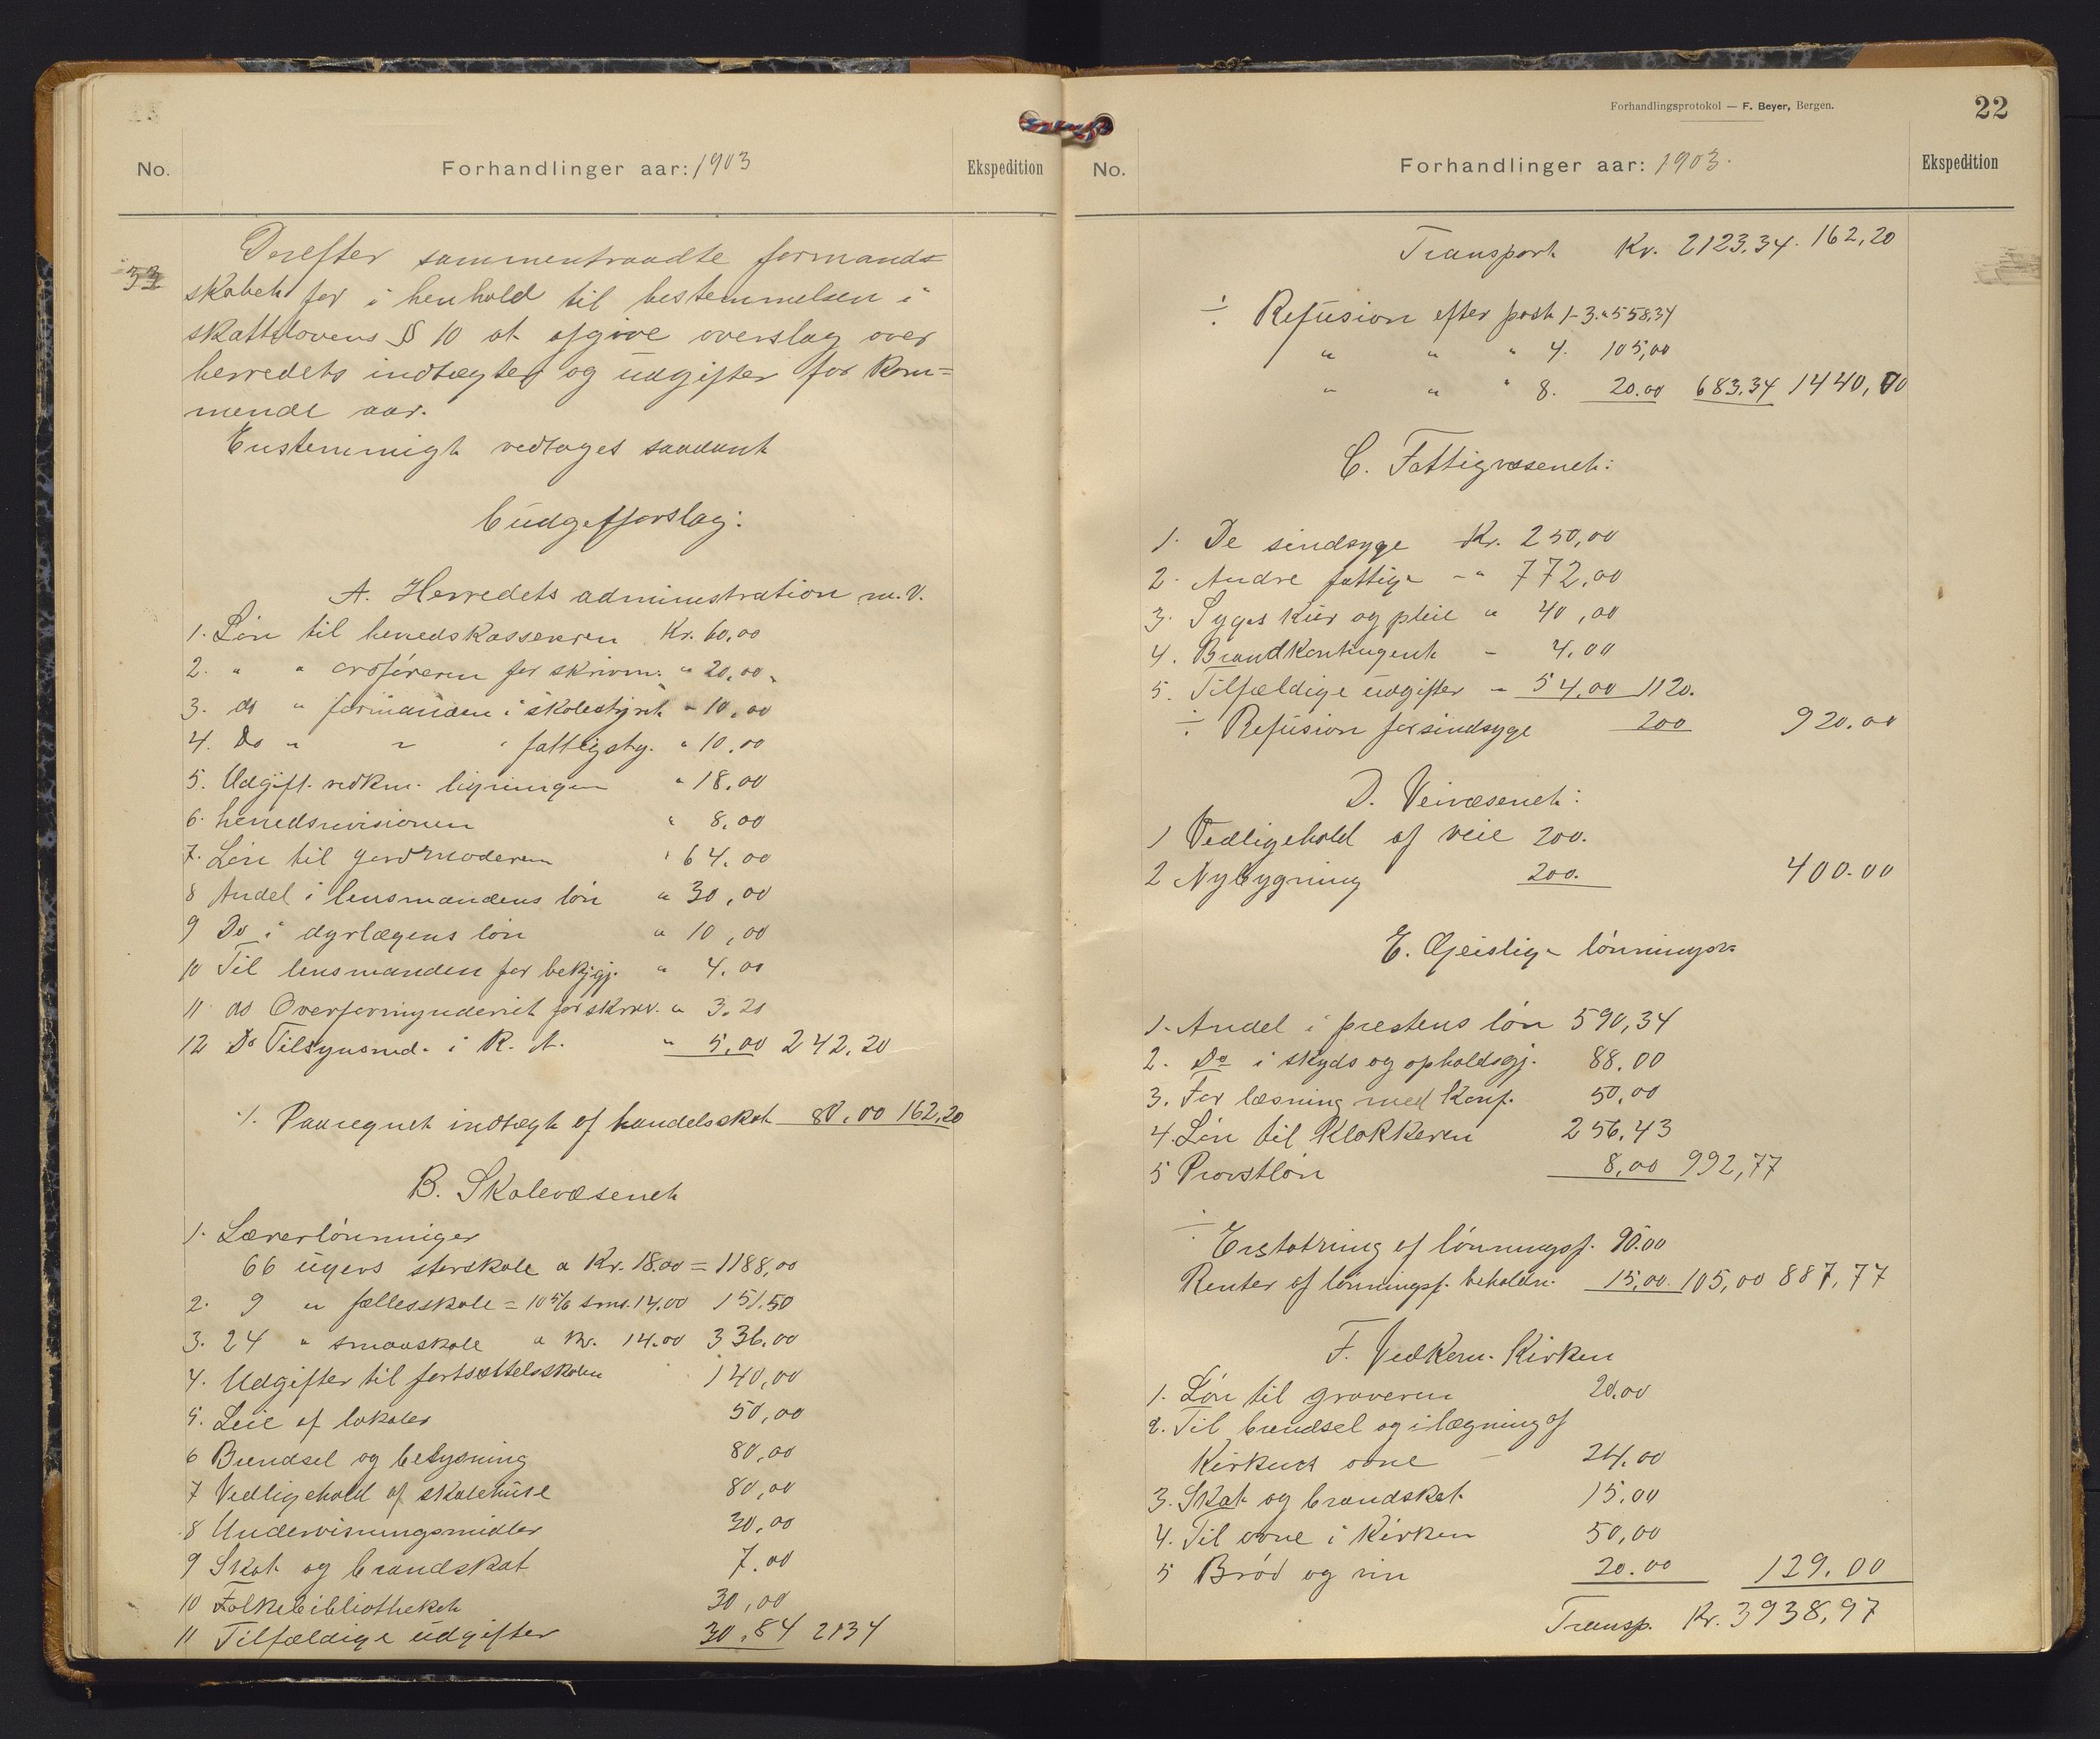 No.
Forhandlinger aar: 1903
Ekspedition
33
Derefter sammentraadte formand-
skabet for i henhold til bestemmelsen i
skattelovens § 10 at afgive overslag over
herredets indtægter og udgifter for kom=
mende aar.
Enstemmigt vedtoges saadant
budgetforslag:
A. Herredets administration m.V.
1. Løn til herredskassereren Kr. 60,00
2. " " ordføreren for skrivm. " 20,00
3. do " formanden i skolestyret " 10,00
4. Do " " " fattigsty. " 10.00
5. Udgift. vedkm. ligningen " 18.00
6. herredsrevisionen " 8,00
7. Løn til jordmoderen " 64.00
8 Andel i lensmandens løn " 30,00
9 Do i dyrlægens løn " 10,00
10 Til lensmanden for bekjgj. " 4.00
11 do Overformynderiet for skriv. " 3.20
12 Do Tilsynsmd. i R. A. " 5,00 242.20
./. Paaregnet indtægt af handelsskat 80.00 162,20
B. Skolevæsenet
1. Lærerlønninger
66 ugers storskole a Kr. 18.00 = 1188,00
2. 9 " fællesskole = 10 5/6 sms. 14.00 151.50
3. 24 " smaaskole a Kr. 14.00 336.00
4. Udgifter til fortsættelsskolen 140,00
5. Leie af lokaler 50,00
6 Brendsel og belysning 80,00
7 Vedligehold af skolehuse 80,00
8 Undervisningsmidler 30,00
9 Skat og brandskat 7.00
10 Folkebibliotheket 30,00
11 Tilfældige udgifter 30.84 2134
Forhandlingsprotokol — F. Beyer, Bergen.
22
No.
Forhandlinger aar: 1903.
Ekspedition
Transport Kr. 2123.34. 162,20
÷ Refusion efter post 1-3. " 558,34
" " " 4. 105,00
" " " 8. 20.00 683.34 1440,00
C. Fattigvæsenet:
1. De sindsyge Kr. 250,00
2. Andre fattige " 772,00
3. Syges kur og pleie " 40,00
4. Brandkontingent - 4.00
5. Tilfældige udgifter " 54,00 1120.
÷ Refusion for sindsyge 200 920.00
D. Veivæsenet:
1 Vedligehold af veie 200.
2 Nybygning 200. 400.00
E. Geistlige lønninger
1. Andel i prestens løn 590,34
2. Do i skyds og opholdsgj. 88.00
3. For læsning med Konf. 50,00
4. Løn til Klokkeren 256,43
5 Provstløn 8,00 992,77
÷ Erstatning af lønningsf. 90.00
Renter af lønningsf. beholdn. 15,00. 105,00 887,77
F. Vedkom. Kirken
1. Løn til graveren 20.00
2. Til brendsel og ilægning af
Kirkens ovne - 24.00
3. Skat og brandskat 15.00
4. Til ovne i Kirken 50,00
5 Brød og vin 20.00 129.00
Transp. Kr. 3938,97